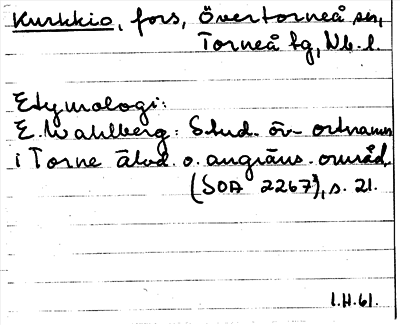 Kurkkio, fors, Övertorneå sn,
Torneå tg, Nb. l.
Etymologi:
E. Wahlberg: Stud. öv. ortnamn
i Torne älvd. o. angräns. områd.
(SOA 2267), s. 21.
1.H.61.